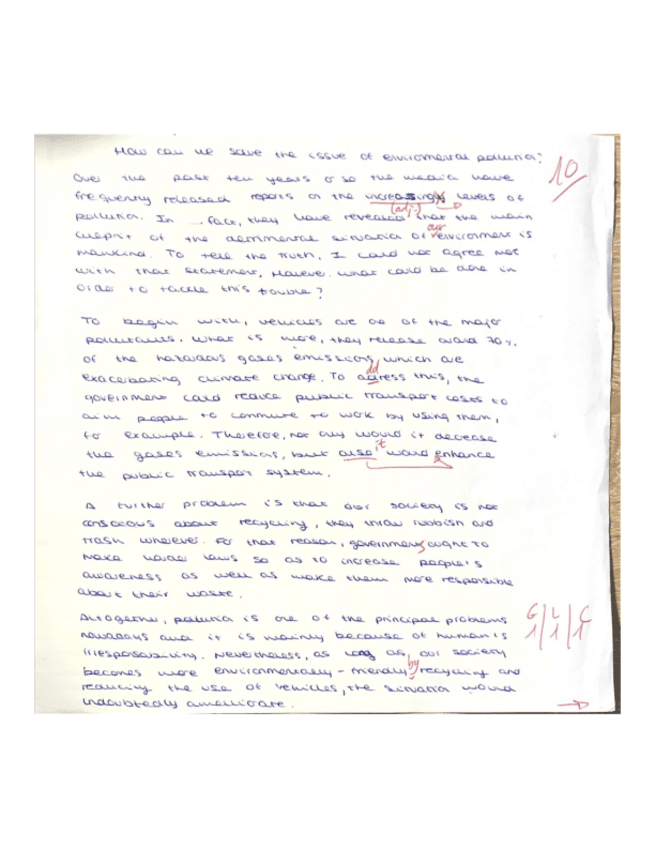 How can we solve the issue of enviromental pollution?
10
Over the past ten years or so the media have
frequently released reports on the increasingly levels of
(adj.)
pollution. In fact, they have revealed that the main
our
culprit of the detrimental situation of environment is
mankind. To tell the truth, I could not agree more
with that statement, However. what could be done in
order to tackle this trouble?
To begin with, vehicles are one of the major
pollutants. What is more, they release around 70%
of the hazardous gases emissions, which are
dd
exacerbating climate change. To adress this, the
government could reduce public transport costs to
aim people to commute to work by using them,
for example. Therefore, not only would it decrease
it
the gases emissions, but also would enhance
the public transport system.
A further problem is that our society is not
conscious about recycling, they throw rubbish and
trash wherever. For that reason, governments ought to
make harder laws so as to increase people's
awareness as well as make them more responsible
about their waste.
Altogether, pollution is one of the principal problems
G / L / C
1 1 1
nowadays and it is mainly because of human's
irresponsability. Nevertheless, as long as our society
by
becomes more environmentally-friendly recycling and
reducing the use of vehicles, the situation would
undoubtedly ameliorate.